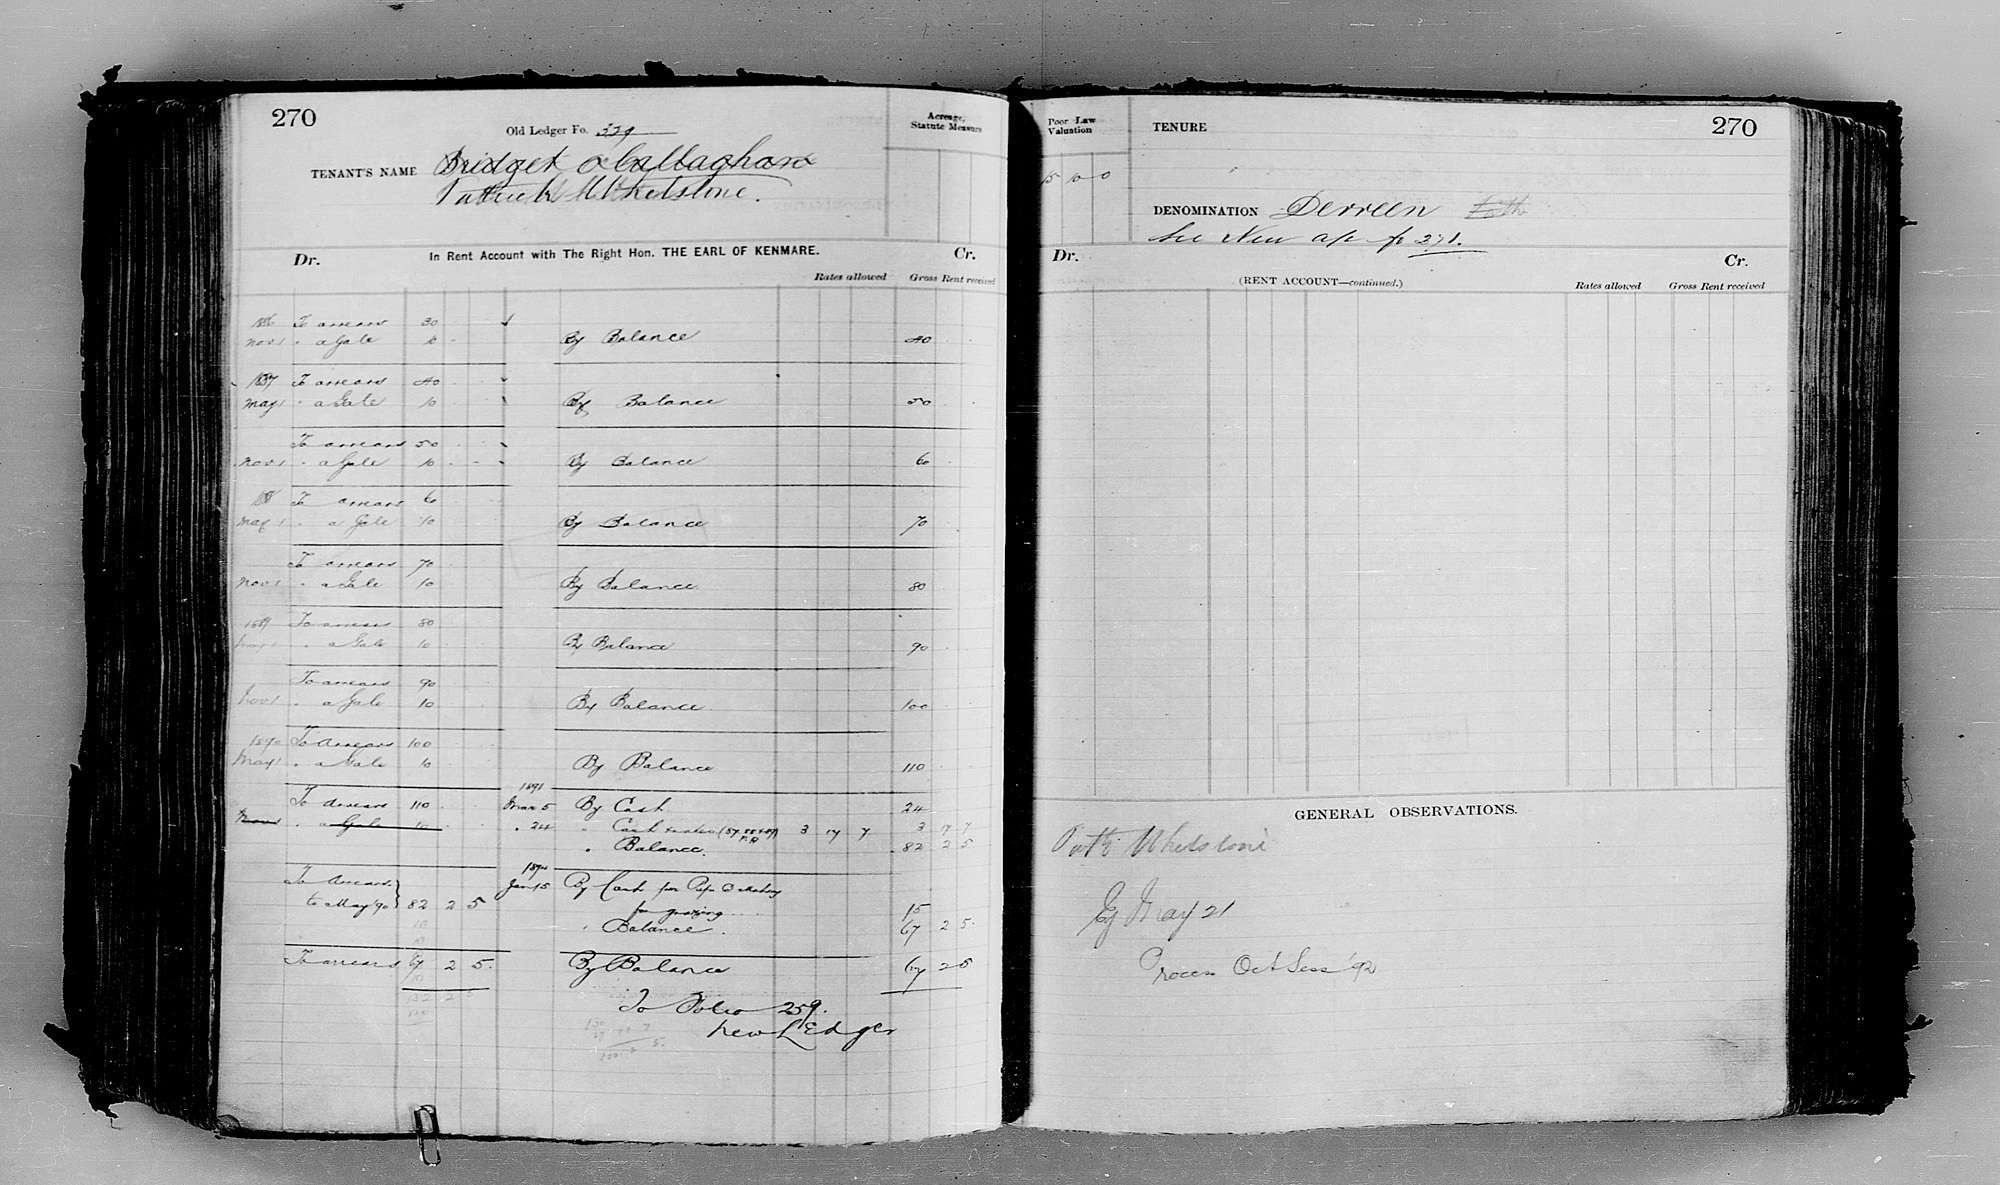 270
Old Ledger Fo. 329
Acreage, Statute Measure
TENANT'S NAME Bridget O'Callaghan
Patrick Whetstone.
In Rent Account with The Right Hon. THE EARL OF KENMARE.
Dr. Cr.
Rates allowed Gross Rent received
1886 To arrears 30
Nov 1 " a Gale 10 By Balance 40
1887 To arrears 40
May 1 " a Gale 10 By Balance 50
To arrears 50
Nov 1 " a Gale 10 By Balance 60
To arrears 60
May 1 " a Gale 10 By Balance 70
To arrears 70
Nov 1 " a Gale 10 By Balance 80
1889 To arrears 80
May 1 " a Gale 10 By Balance 90
To arrears 90
Nov 1 " a Gale 10 By Balance 100
1890 To Arrears 100
May 1 " a Gale 10 By Balance 110
1891
To Arrears 110 Mar 5 By Cash 24
Nov 1 " a Gale 10 " 24 " Cash 3 17 7 3 17 7
" Balance. 82 2 5
To Arrears Jan 15 By Cash per
to May '90 82 2 5 for grazing 15
" Balance. 67 2 5
To arrears 67 2 5 By Balance 67 2 5
To Folio 259.
New Ledger
270
Poor Law Valuation
TENURE
15 10 0
DENOMINATION Derreen
See New a/c fo 271.
Dr. Cr.
(RENT ACCOUNT—continued.)
Rates allowed Gross Rent received
GENERAL OBSERVATIONS.
Patk Whetstone
Ej May 21
Oct Sess '92